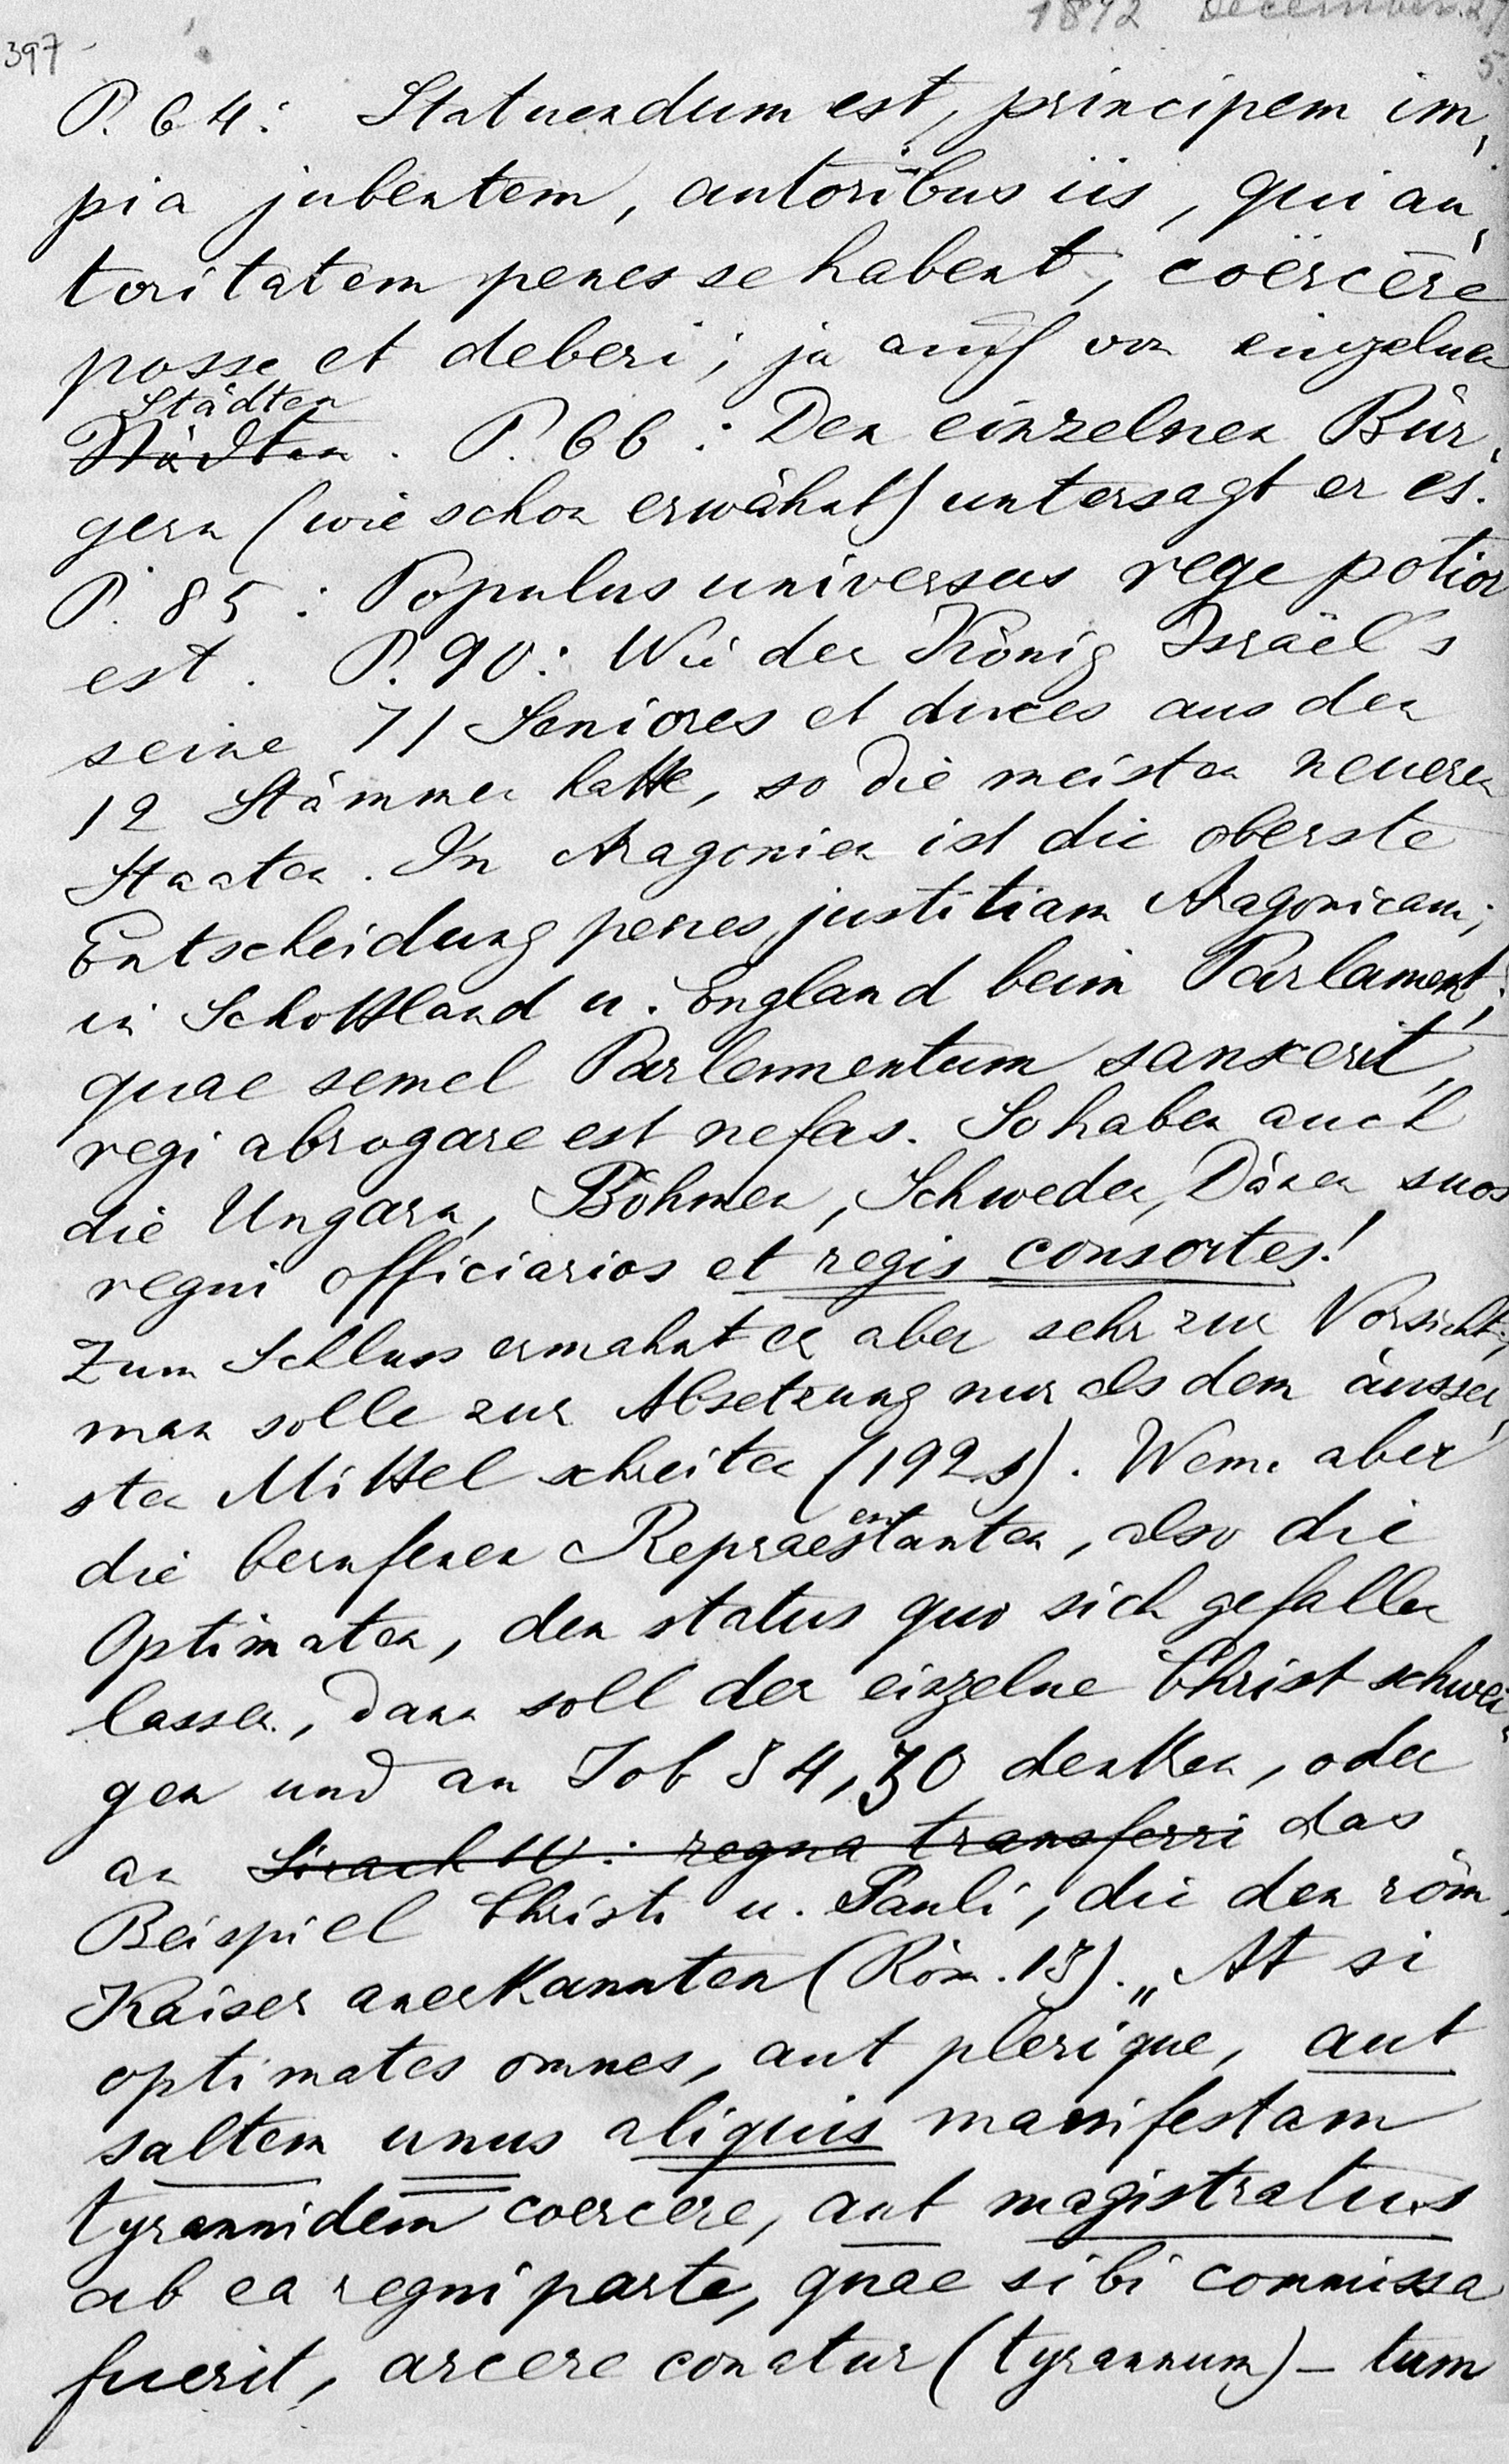 1892 December 27
397
5.
P. 64: Statuendum est, principem im,
pia jubentem, autoribus iis, qui au,
toritatem penes se habent, coërceri
posse et deberi; ja auch von einzelnen
Städten
Städten. P. 66: Den einzelnen Bür,
gern (wie schon erwähnt) untersagt er es.
P. 85: Populus universus rege potior
est. P. 90: Wie der König Israël's
seine 71 Seniores et duces aus den
12 Stämmen hatte, so die meisten neueren
Staaten. In Aragonien ist die oberste
Entscheidung penes justitiam Aragonicam;
in Schottland u. England beim Parlament;
quae semel Parlamentum sanxerit,
regi abrogare est nefas. So haben auch
die Ungarn, Böhmen, Schweden, Dänen suos
regni officiarios et regis consortes!
Zum Schluss ermahnt er aber sehr zur Vorsicht;
man solle zur Absetzung nur als dem äusser,
sten Mittel schreiten (192 s). Wenn aber
die berufenen Repraesentanten, also die
Optimaten, den status quo sich gefallen
lassen, dann soll der einzelne Christ schwei,
gen und an Job 34,30 denken, oder
an Sirach 10: regna transferri das
Beispiel Christi u. Pauli, die den röm,
Kaiser anerkannten (Röm. 13). „At si
optimates omnes, aut plerique, aut
saltem unus aliquis manifestam
tyrannidem coercere, aut magistratus
ab ea regni parte, quae sibi commissa
fuerit, arcere conatur (tyrannum) – tum